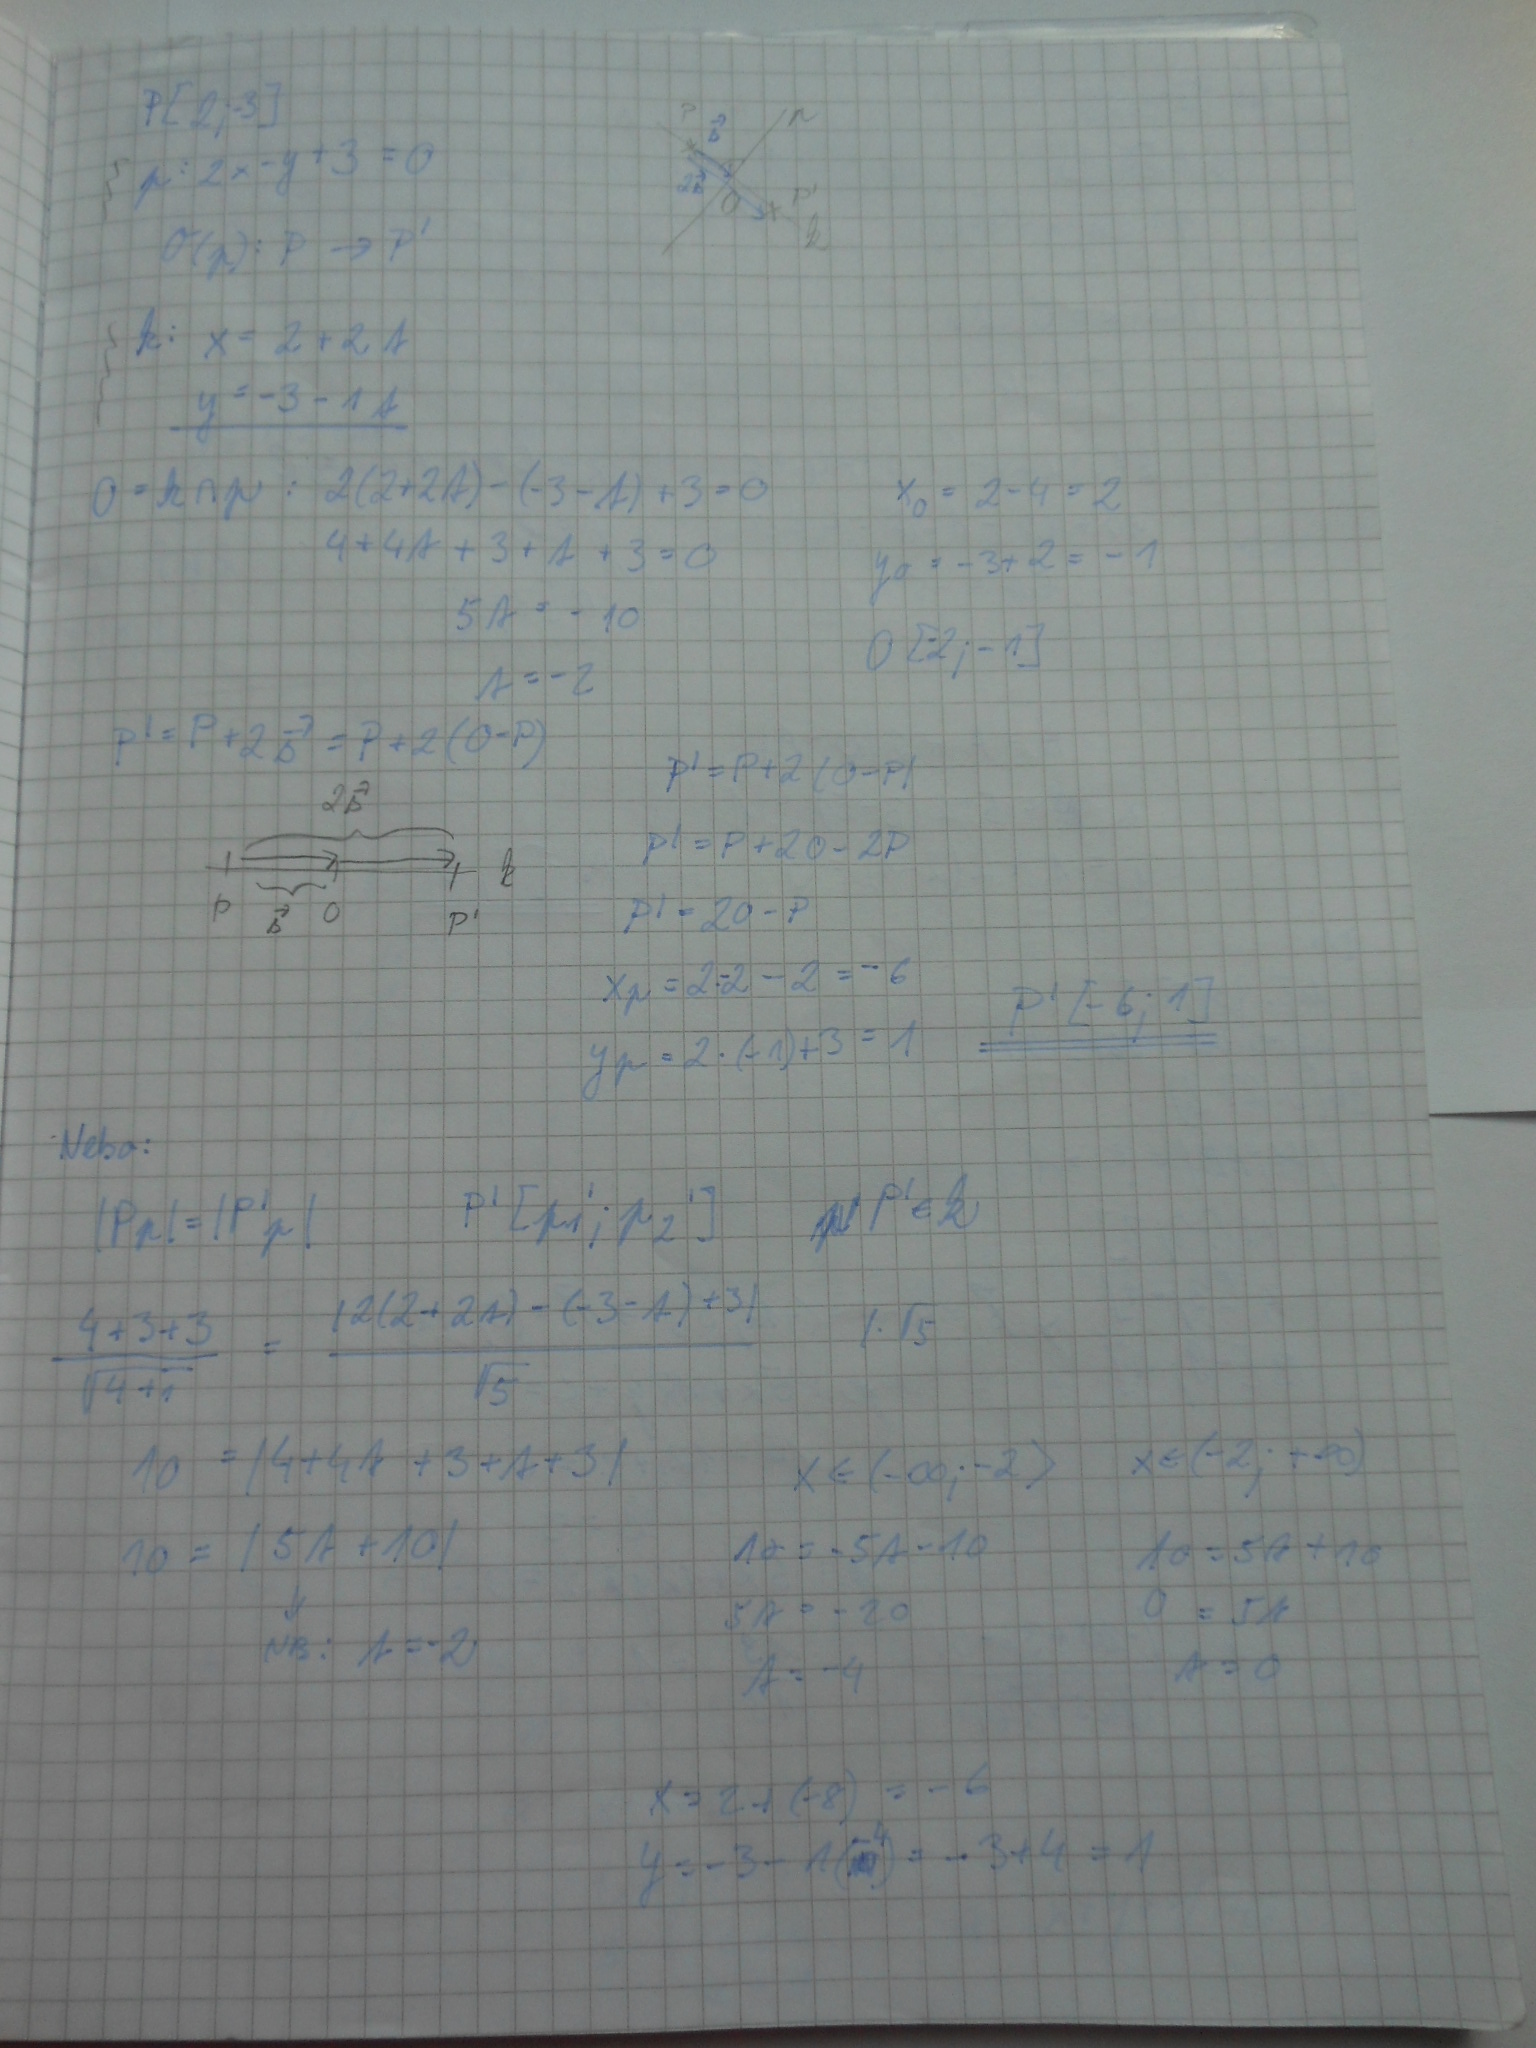 P[2;-3]
p: 2x-y+3=0
O(p): P → P'
k: x = 2+2t
y = -3-1t
P b⃗ p
2b⃗ O P'
k
O = k∩p: 2(2+2t)-(-3-t)+3=0
4+4t+3+t+3=0
5t = -10
t = -2
x₀ = 2-4 = 2
y₀ = -3+2 = -1
O[-2;-1]
P' = P+2b⃗ = P+2(O-P)
2b⃗
k
P b⃗ O P'
P' = P+2(O-P)
P' = P+2O-2P
P' = 2O-P
xp = 2·-2-2 = -6
yp = 2·(-1)+3 = 1
P'[-6;1]
Nebo:
|Pp| = |P'p| P'[p₁';p₂'] P'∈k
(4+3+3)/√(4+1) = |2(2+2t)-(-3-t)+3|/√5 /·√5
10 = |4+4t+3+t+3|
10 = |5t+10|
↓
NB: t = -2
x∈(-∞;-2⟩
10 = -5t-10
5t = -20
t = -4
x∈(-2;+∞)
10 = 5t+10
0 = 5t
t = 0
x = 2+(-8) = -6
y = -3-1(-4) = -3+4 = 1